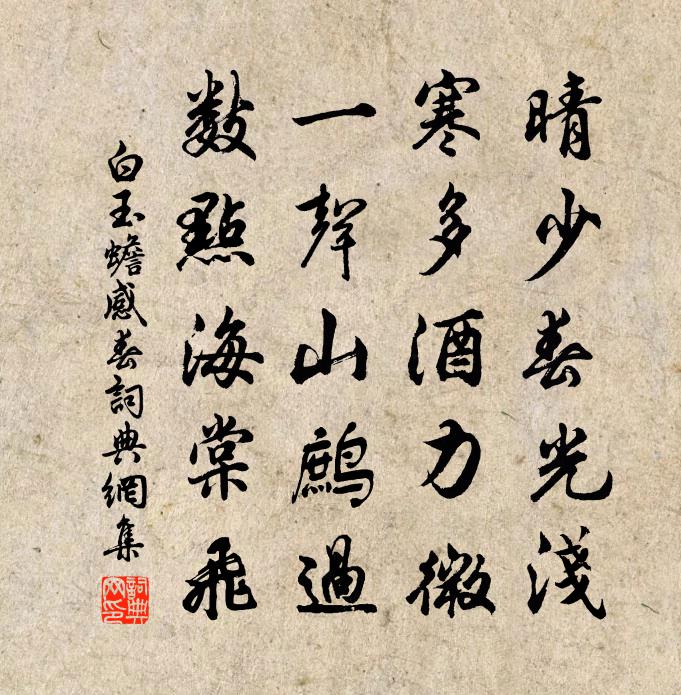 晴少春光淺
寒多酒力微
一聲山鷓過
數點海棠飛
白玉蟾感春詞典網集
詞典網印